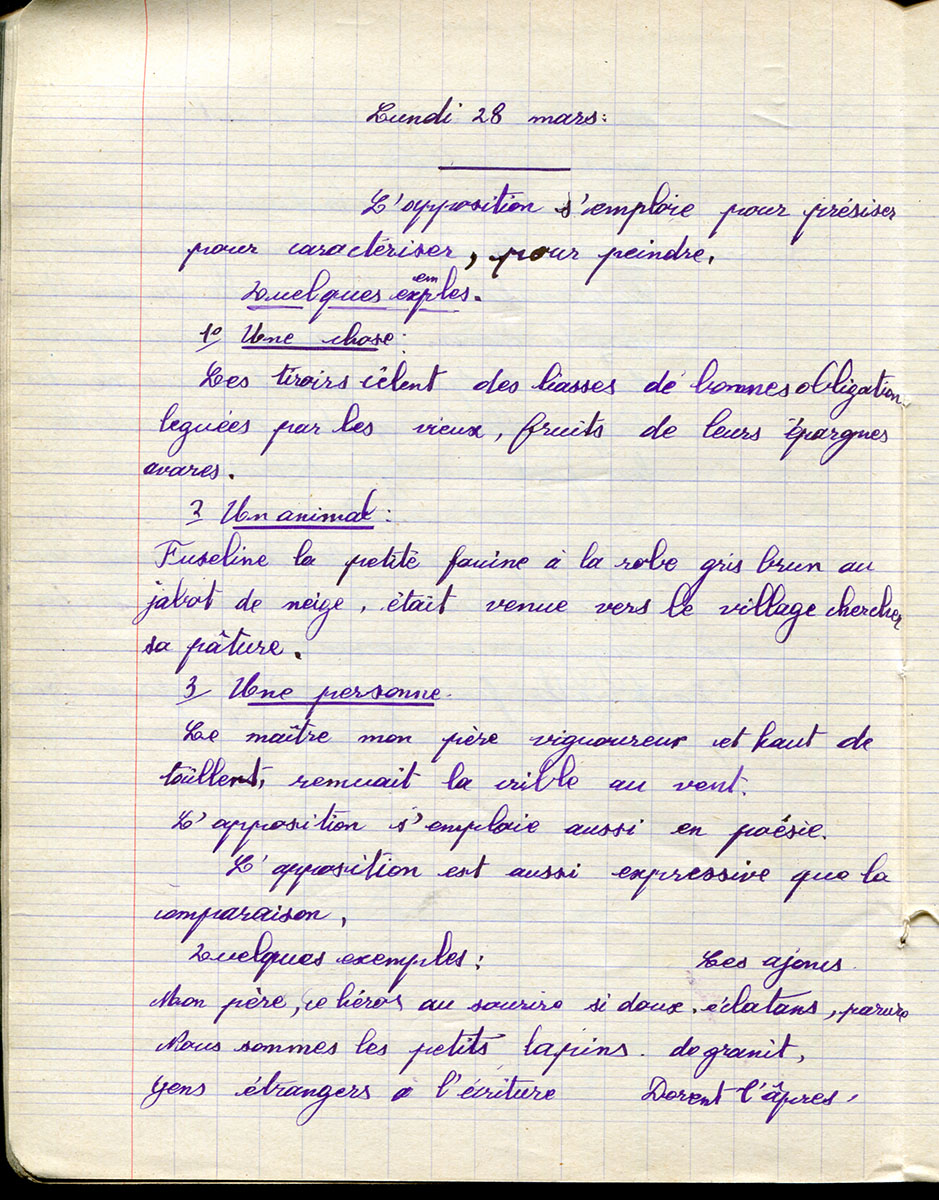 Lundi 28 mars:
L'opposition s'emploie pour présiser
pour caractériser, pour peindre,
Quelques exemples.
1º Une chose:
Les tiroirs cèlent des liasses de bonnes obligation
leguées par les vieux, fruits de leurs épargnes
avares.
2 Un animal:
Fuseline la petite fouine à la robe gris brun au
jabot de neige, était venue vers le village chercher
sa pâture.
3 Une personne.
Le maître mon père viguoureux et haut de
remuait la crible au vent.
L'apposition s'emploie aussi en poésie.
L'apposition est aussi expressive que la
comparaison,
Quelques exemples: Les ajoncs.
Mon père, ce héros au sourire si doux. éclatans, parure
Nous sommes les petits lapins. de granit,
Gens étrangers à l'écriture Dorent l'âpres,